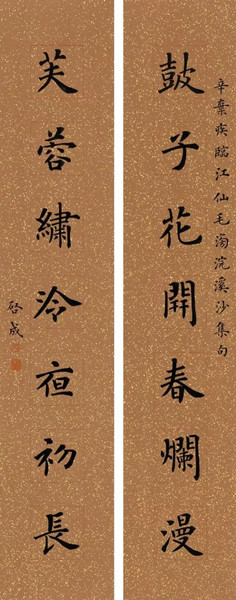 辛棄疾臨江仙毛滂浣溪沙集句
鼓子花開春爛漫
芙蓉繡冷夜初長
啓成